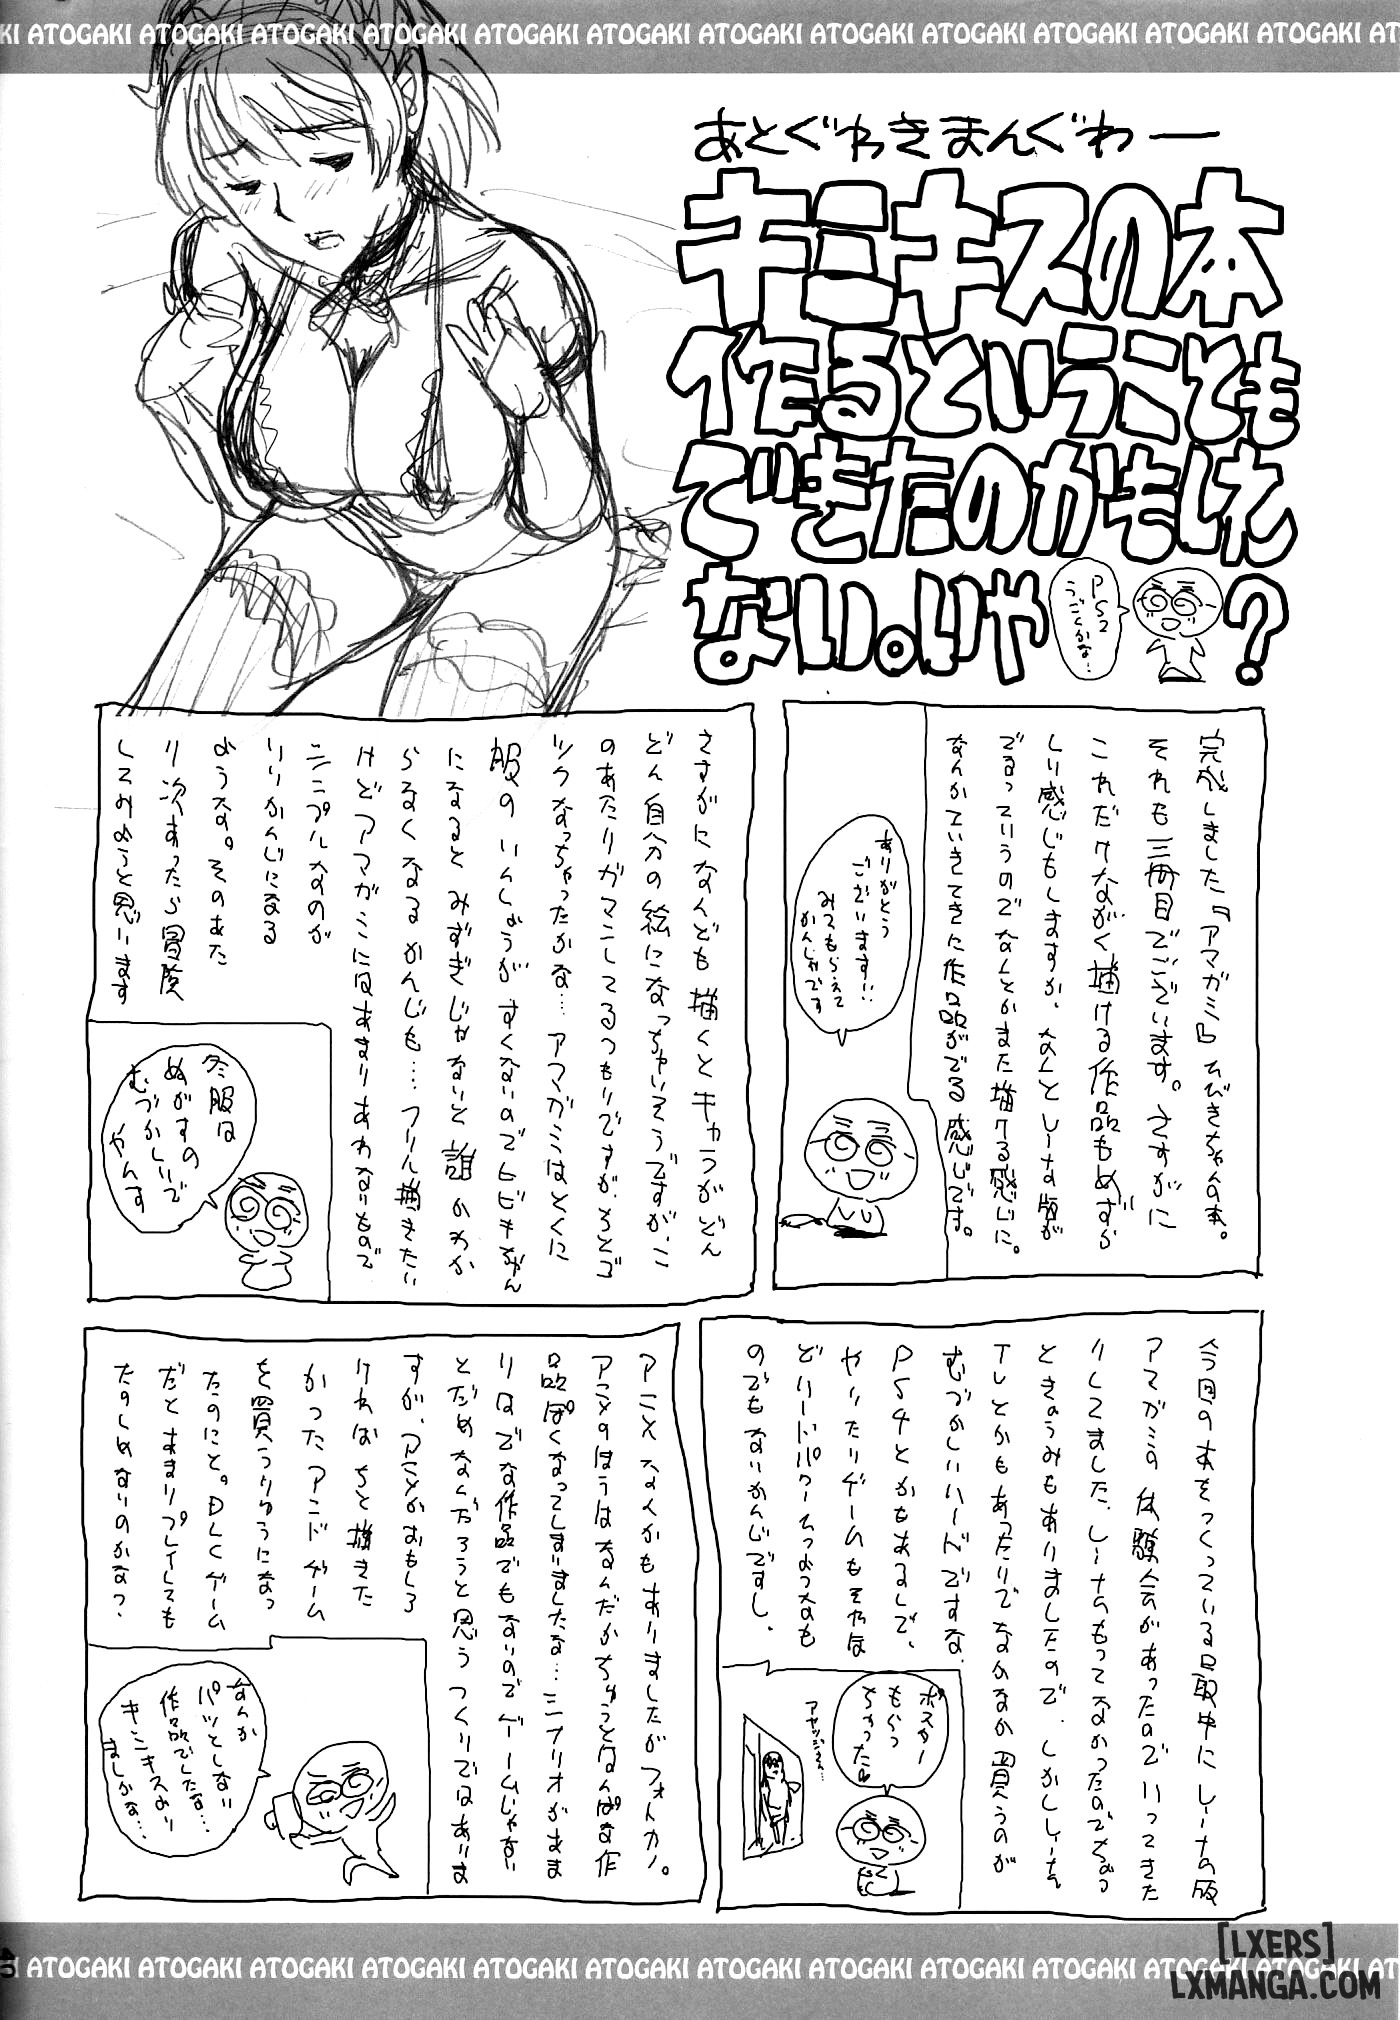 KI ATOGAKI ATOGAKI ATOGAKI ATOGAKI ATOGAKI ATOGAKI ATOGAKI ATOGAKI ATOGAKI ATOGAKI ATOGAKI ATOGAKI AT
あとぐわきまんぐわー
キミキスの本
作るということも
できたのかもしれ
ない。いや
PS2
うごくかな…
?
完成しました『アマガミ』ひびきちゃんの本。
それも三冊目でございます。さすがに
これだけながく描ける作品もめずら
しい感じもしますが、なんとレーナの版が
でるっていうのでなんとかまた描ける感じに。
なんかていきてきに作品がでる感じです。
ありがとう
ございます!!
みてもらえて
かんしゃです
さすがになんども描くとキャラがどん
どん自分の絵になっちゃいそうですが、こ
のあたりガマンしてるつもりですが、ちとゴ
ツクなっちゃったかな…アマガミはとくに
服のいんしょうがすくないのでヒビキちゃん
になるとみずぎじゃないと誰かわか
らなくなるかんじも…フリル描きたい
けどアマガミにはあまりあわないもので
シンプルなのが
いいかんじになる
ような。そのあた
り次あったら冒険
してみようと思います
冬服は
ぬがすの
むづかしいで
やんす
今回の本をつくっている最中にレーナの版
アマガミの体験会があったのでいってきた
りしてました。レーナもってなかったのでちょっ
ときょうみもありましたので。しかしレーナ
TLとかもあったりでなかなか買うのが
むづかしいハードですな
PS4とかもあるしで、
やりたいゲームもそれほ
どハードパワーつかうなも
のでもないかんじですし、
ポスター
もらっ
ちゃった
アニメなんかもありましたがフォトカノ。
アニメのほうはなんだかちょっとなんぱな作
品ぽくなってしまいましたな…シナリオがあま
りはでな作品でもないのでゲームじゃない
とだめなんだろうと思うつくりではありま
すが、アニメがおもしろ
ければちと描きた
かったアンドゲーム
を買うりゆうになっ
たのにと。DLCゲーム
だとあまりプレイしても
たのしめないのかなっ、
なんか
パッとしない
作品でしたな…
キミキスより
ましかな…
[LXERS]
LXMANGA.COM
KI ATOGAKI ATOGAKI ATOGAKI ATOGAKI ATOGAKI ATOGAKI ATOGAKI ATOGAKI ATOGAKI ATOGAKI ATOGAKI ATOGAKI AT